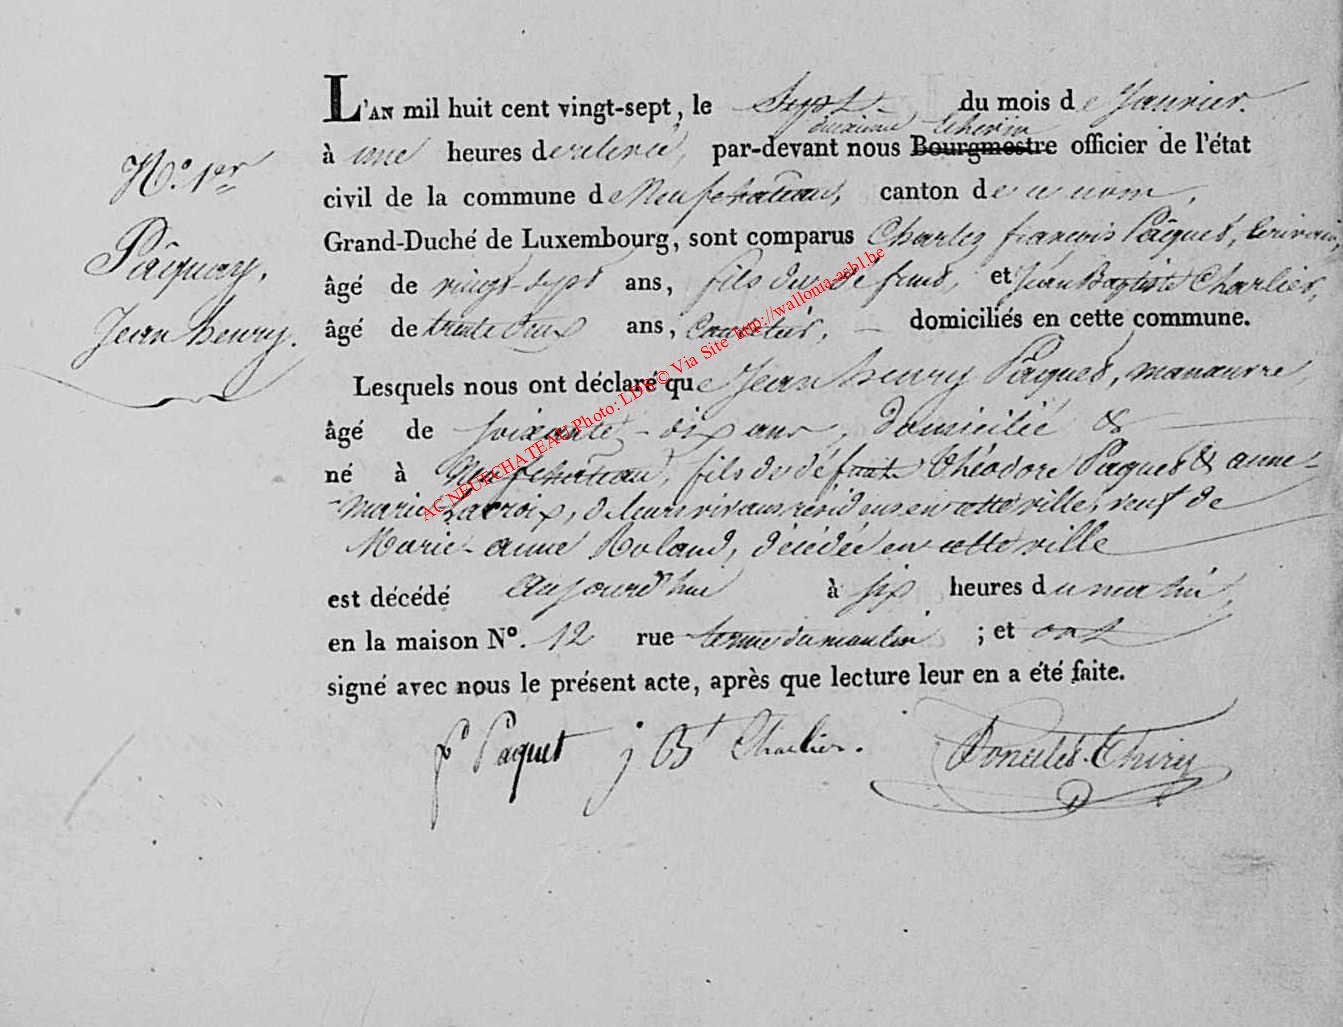 N.° 1er
Pâquay,
Jean henry.
L'AN mil huit cent vingt-sept, le Sept du mois de Janvier.
deuxieme Echevin
à une heures de relevée, par-devant nous Bourgmestre officier de l'état
civil de la commune de Neufchateau, canton de ce nom,
Grand-Duché de Luxembourg, sont comparus Charles françois Pâques, Ecrivain,
âgé de vingt-sept ans, fils du défunt, et Jean Baptiste Charlier,
âgé de trente deux ans, domiciliés en cette commune.
Lesquels nous ont déclaré que Jean henry Pâques, manœuvre
âgé de soixante-dix ans, domicilié &
né à Neufchâteau, fils de défunt Théodore Paques & anne-
-marie Lacroix, de leurs vivans résidens en cette ville, veuf de
Marie-anne Roland, décédée en cette ville
est décédé aujourd'hui à six heures du matin,
en la maison N°. 12 rue du moulin ; et ont
signé avec nous le présent acte, après que lecture leur en a été faite.
fs Paquet j Bt Charlier. Poncelet-Thiry
AC NEUFCHATEAU Photo: LDW © Via Site http://wallonia-asbl.be